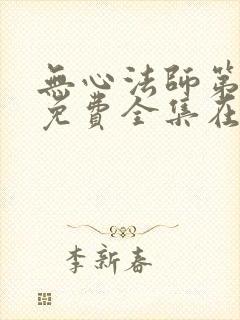 無心法師第
免費全集在
李新春